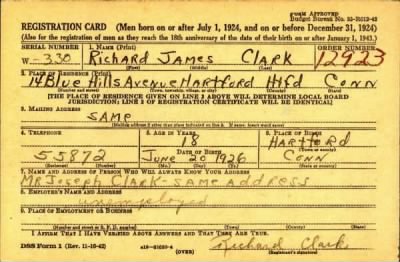 FORM APPROVED
Budget Bureau No. 33-R012-42
REGISTRATION CARD (Men born on or after July 1, 1924, and on or before December 31, 1924)
(Also for the registration of men as they reach the 18th anniversary of the date of their birth on or after January 1, 1943.)
SERIAL NUMBER 1. NAME (Print) ORDER NUMBER
W-330 Richard James Clark 12923
(First) (Middle) (Last)
2. PLACE OF RESIDENCE (Print)
14 Blue Hills Avenue Hartford Htfd Conn
(Town, township, village, or city) (County) (State)
[THE PLACE OF RESIDENCE GIVEN ON LINE 2 ABOVE WILL DETERMINE LOCAL BOARD
JURISDICTION; LINE 2 OF REGISTRATION CERTIFICATE WILL BE IDENTICAL]
3. MAILING ADDRESS
SAME
(Mailing address if other than place indicated on line 2. If same, insert word same)
4. TELEPHONE 5. AGE IN YEARS 6. PLACE OF BIRTH
18 Hartford
DATE OF BIRTH (Town or county)
55872 June 20 1926 Conn
(Mo.) (Day) (Yr.) (State or country)
7. NAME AND ADDRESS OF PERSON WHO WILL ALWAYS KNOW YOUR ADDRESS
Mr Joseph Clark - same address
8. EMPLOYER'S NAME AND ADDRESS
unemployed
9. PLACE OF EMPLOYMENT OR BUSINESS
(Number and street or R. F. D. number) (Town) (County) (State)
I AFFIRM THAT I HAVE VERIFIED ABOVE ANSWERS AND THAT THEY ARE TRUE.
DSS Form 1 (Rev. 11-16-42) (OVER) Richard Clark
(Registrant's signature)